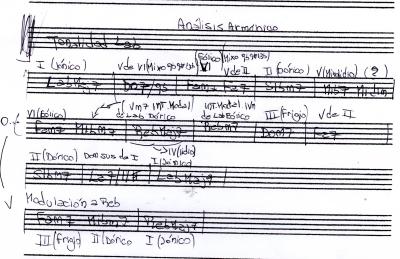 Análisis Armónico
Tonalidad Lab
I (Jónico) V de VI (Mixo b9 b13) VI (Eólico) V de II (Mixo b9 b13) II (Dórico) V (Mixolidio) (?)
LabMaj7 Do7/ Fam7 Fa7 Sibm7 Mib7 Mi dim
VI (Eólico) (Vm7 INT. Modal de Lab Dórico INT. Modal IVm de Lab Eólico III (Frigio) V de II
Fam7 Mibm7 RebMaj7 Rebm7 Dom7 Fa7
II (Dórico) Dom sus de I I (Jónico) IV (Lidio)
Sibm7 La7 LabMaj7
Modulación a Reb
Fam7 Mibm7 RebMaj7
III (Frigio) II (Dórico I (Jónico)